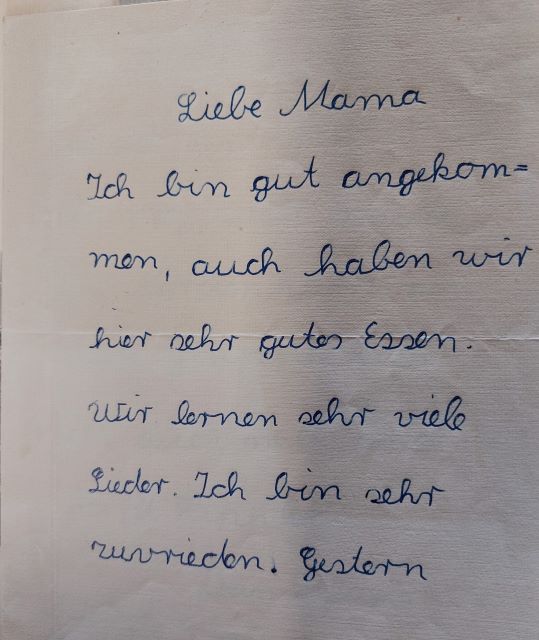 Liebe Mama
Ich bin gut angekom=
men, auch haben wir
hier sehr gutes Essen.
Wir lernen sehr viele
Lieder. Ich bin sehr
zuvrieden. Gestern